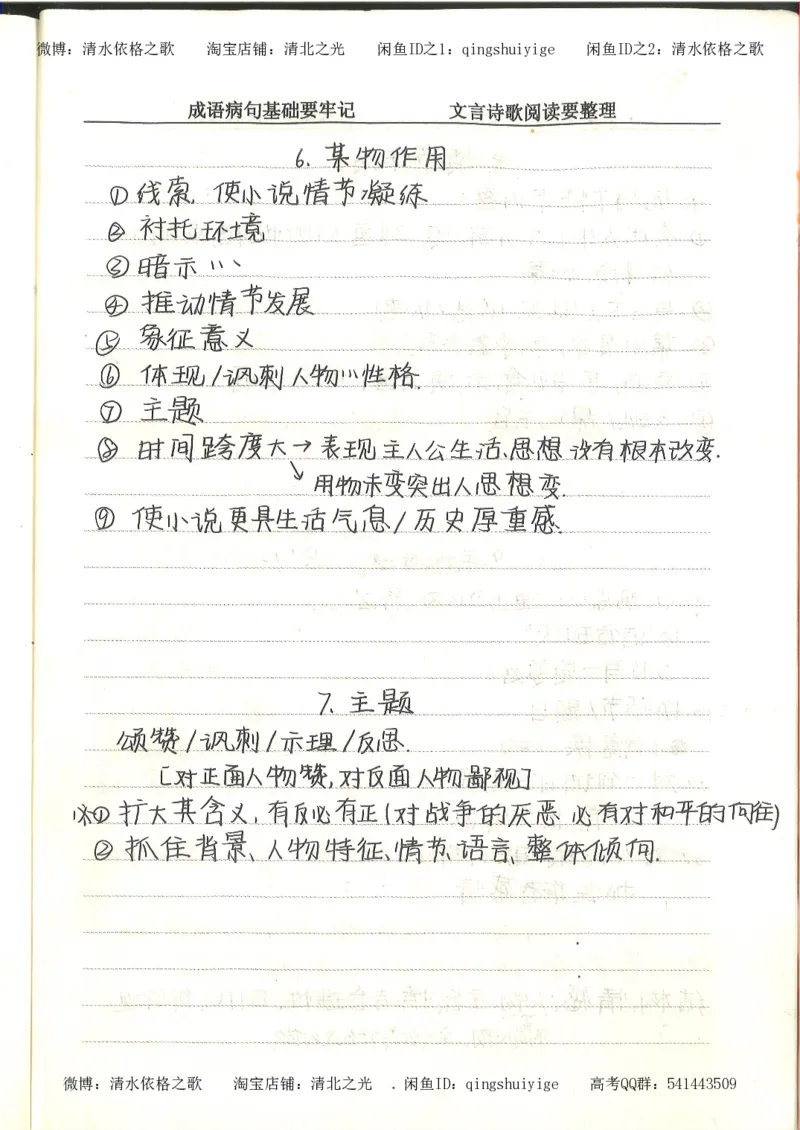 微博：清水依格之歌 淘宝店铺：清北之光 闲鱼ID之1：qingshuiyige 闲鱼ID之2：清水依格之歌
成语病句基础要牢记 文言诗歌阅读要整理
6. 某物作用
①线索，使小说情节凝练
②衬托环境
③暗示…
④推动情节发展
⑤象征意义
⑥体现/讽刺人物…性格.
⑦主题
⑧时间跨度大→表现主人公生活、思想没有根本改变.
↘用物未变突出人思想变.
⑨使小说更具生活气息/历史厚重感.
7. 主题
颂赞/讽刺/示理/反思.
[对正面人物赞，对反面人物鄙视]
※①扩大其含义，有反必有正(对战争的厌恶 必有对和平的向往)
②抓住背景、人物特征、情节、语言、整体倾向.
微博：清水依格之歌 淘宝店铺：清北之光 . 闲鱼ID：qingshuiyige 高考QQ群：541443509